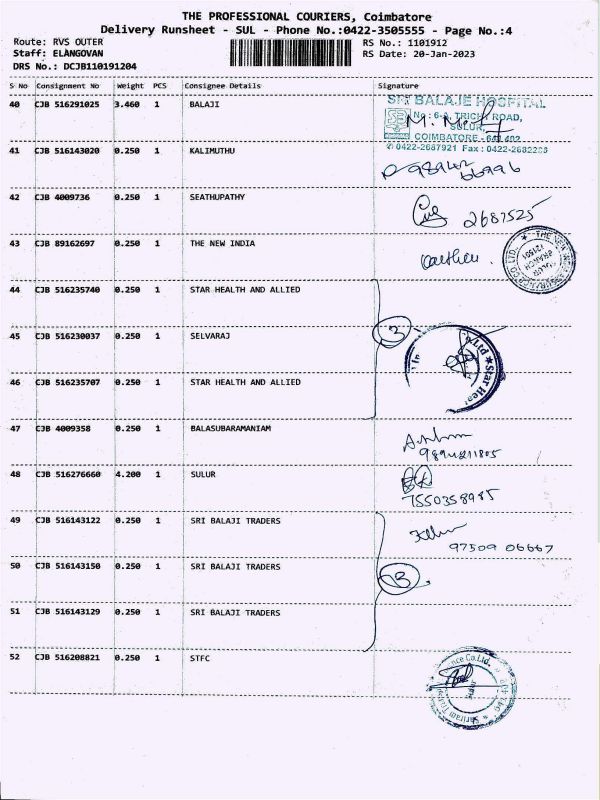 THE PROFESSIONAL COURIERS, Coimbatore
Delivery Runsheet - SUL - Phone No.:0422-3505555 - Page No.:4
Route: RVS OUTER
RS No.: 1101912
Staff: ELANGOVAN
RS Date: 20-Jan-2023
DRS No.: DCJB110191204
S No Consignment No Weight PCS Consignee Details Signature
40 CJB 516291025 3.460 1 BALAJI
SRI BALAJE HOSPITAL
No : 6-A, TRICHY ROAD,
SULUR,
COIMBATORE - 641 402
0422-2687921 Fax : 0422-2682286
41 CJB 516143020 0.250 1 KALIMUTHU
42 CJB 4009736 0.250 1 SEATHUPATHY
2687525
43 CJB 89162697 0.250 1 THE NEW INDIA
44 CJB 516235740 0.250 1 STAR HEALTH AND ALLIED
45 CJB 516230037 0.250 1 SELVARAJ
3
46 CJB 516235707 0.250 1 STAR HEALTH AND ALLIED
47 CJB 4009358 0.250 1 BALASUBARAMANIAM
9894211805
48 CJB 516276660 4.200 1 SULUR
7550358985
49 CJB 516143122 0.250 1 SRI BALAJI TRADERS
97509 06667
50 CJB 516143150 0.250 1 SRI BALAJI TRADERS
3
51 CJB 516143129 0.250 1 SRI BALAJI TRADERS
52 CJB 516208821 0.250 1 STFC